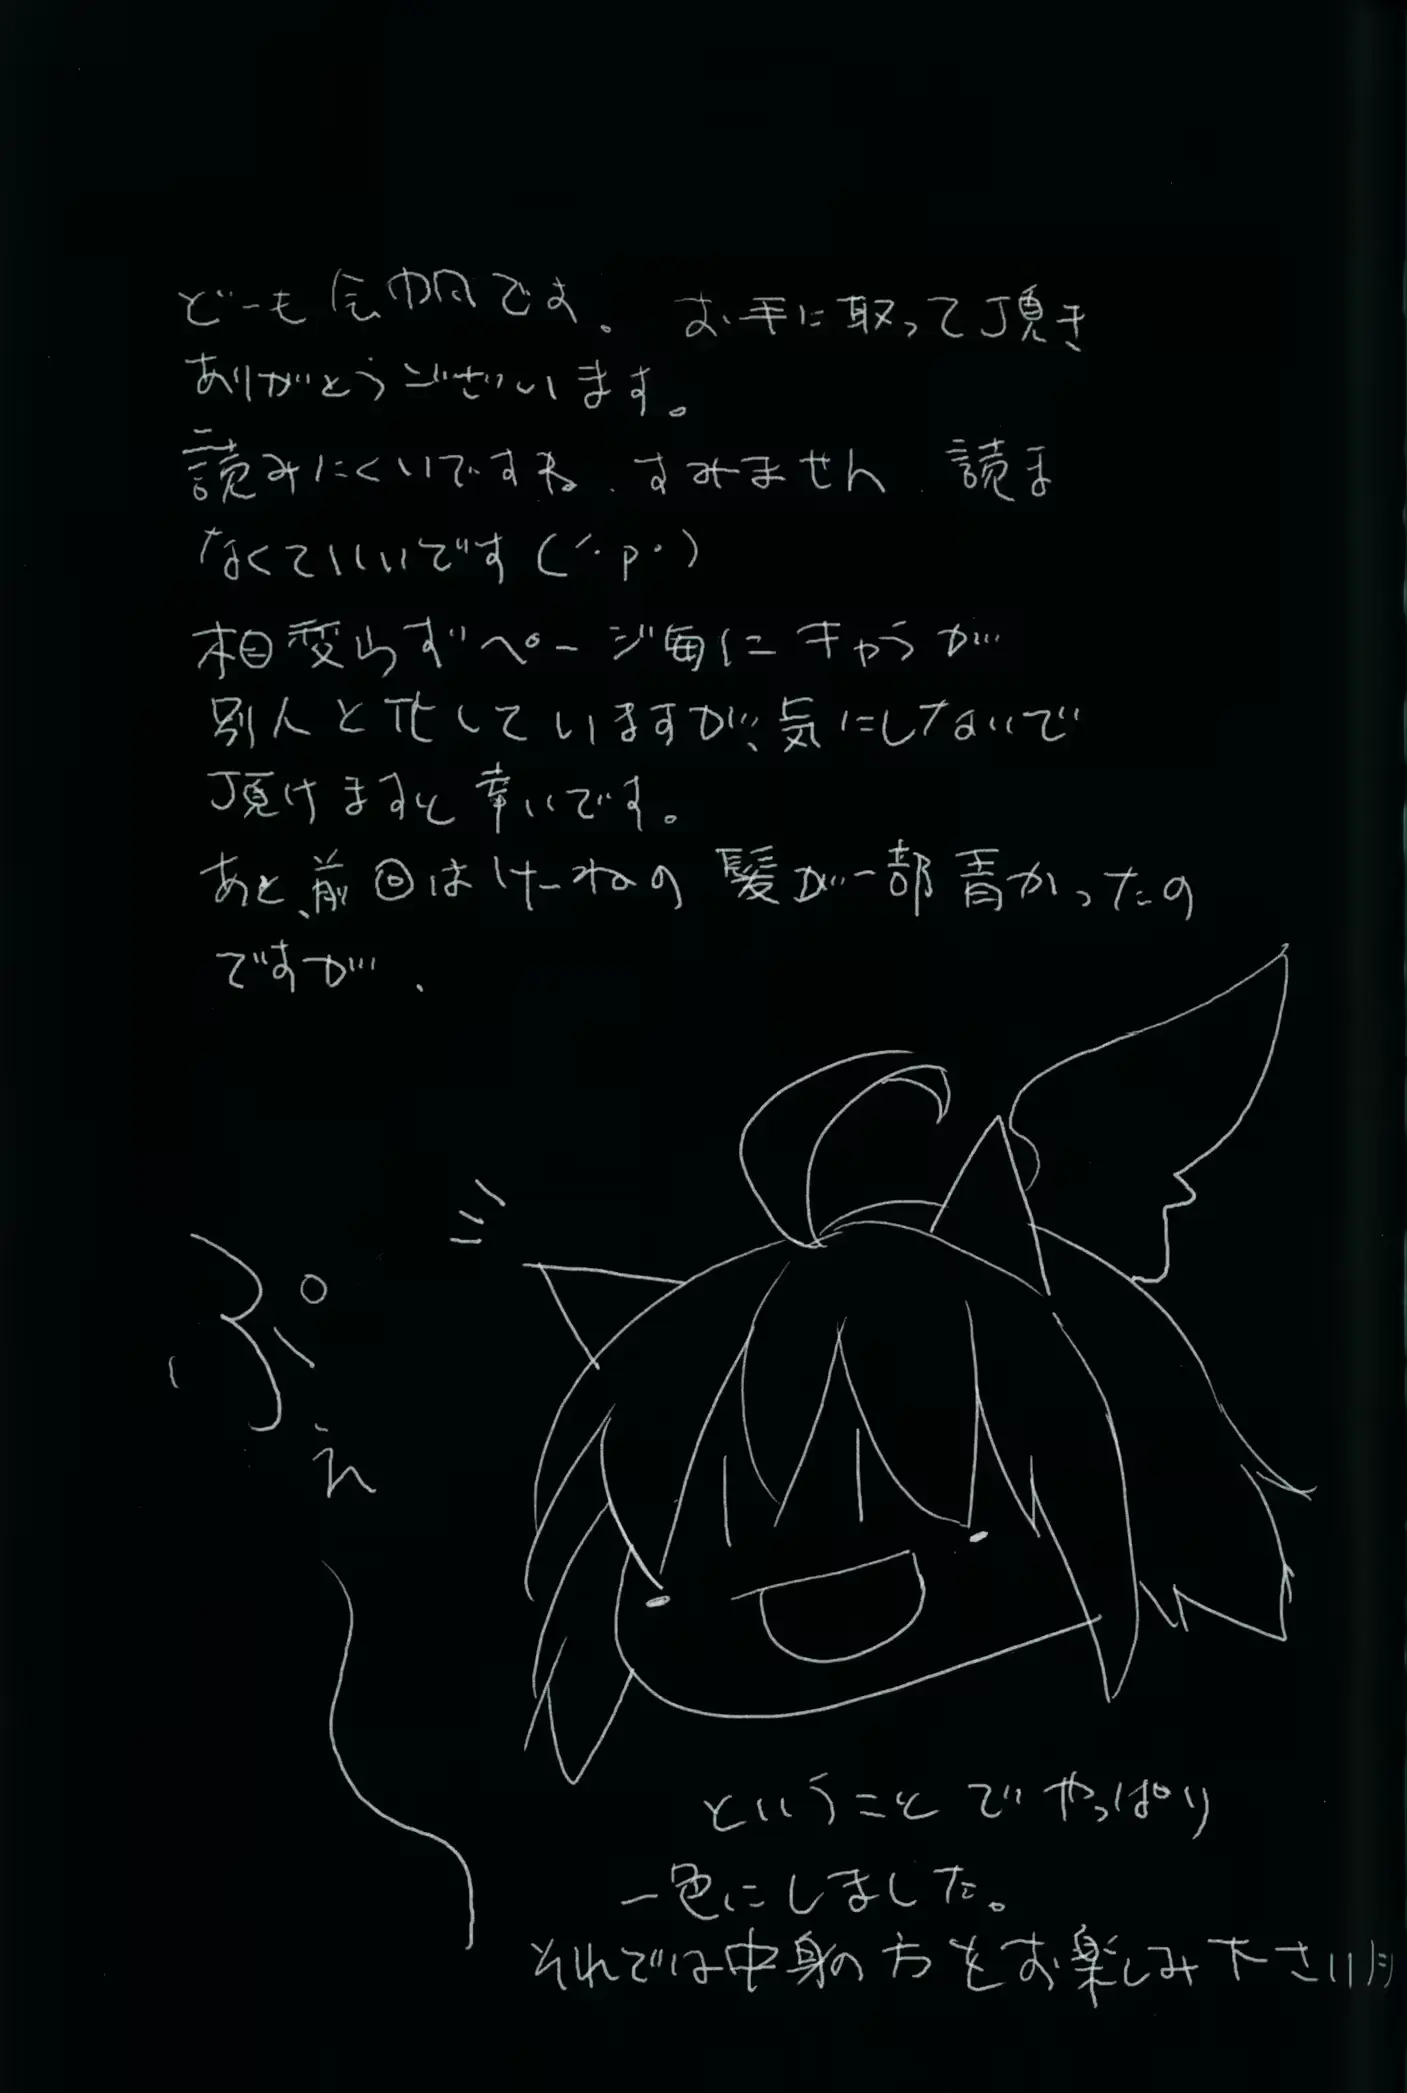 どーも です。お手に取って頂き
ありがとうございます。
読みにくいですね、すみません 読ま
なくていいです(´・p・)
相変らずページ毎にキャラが
別人と化していますが、気にしないで
頂けますと幸いです。
あと、前回はけーねの髪が一部青かったの
ですが、
ぷぇ
ということでやっぱり
一色にしました。
それでは中身の方をお楽しみ下さい